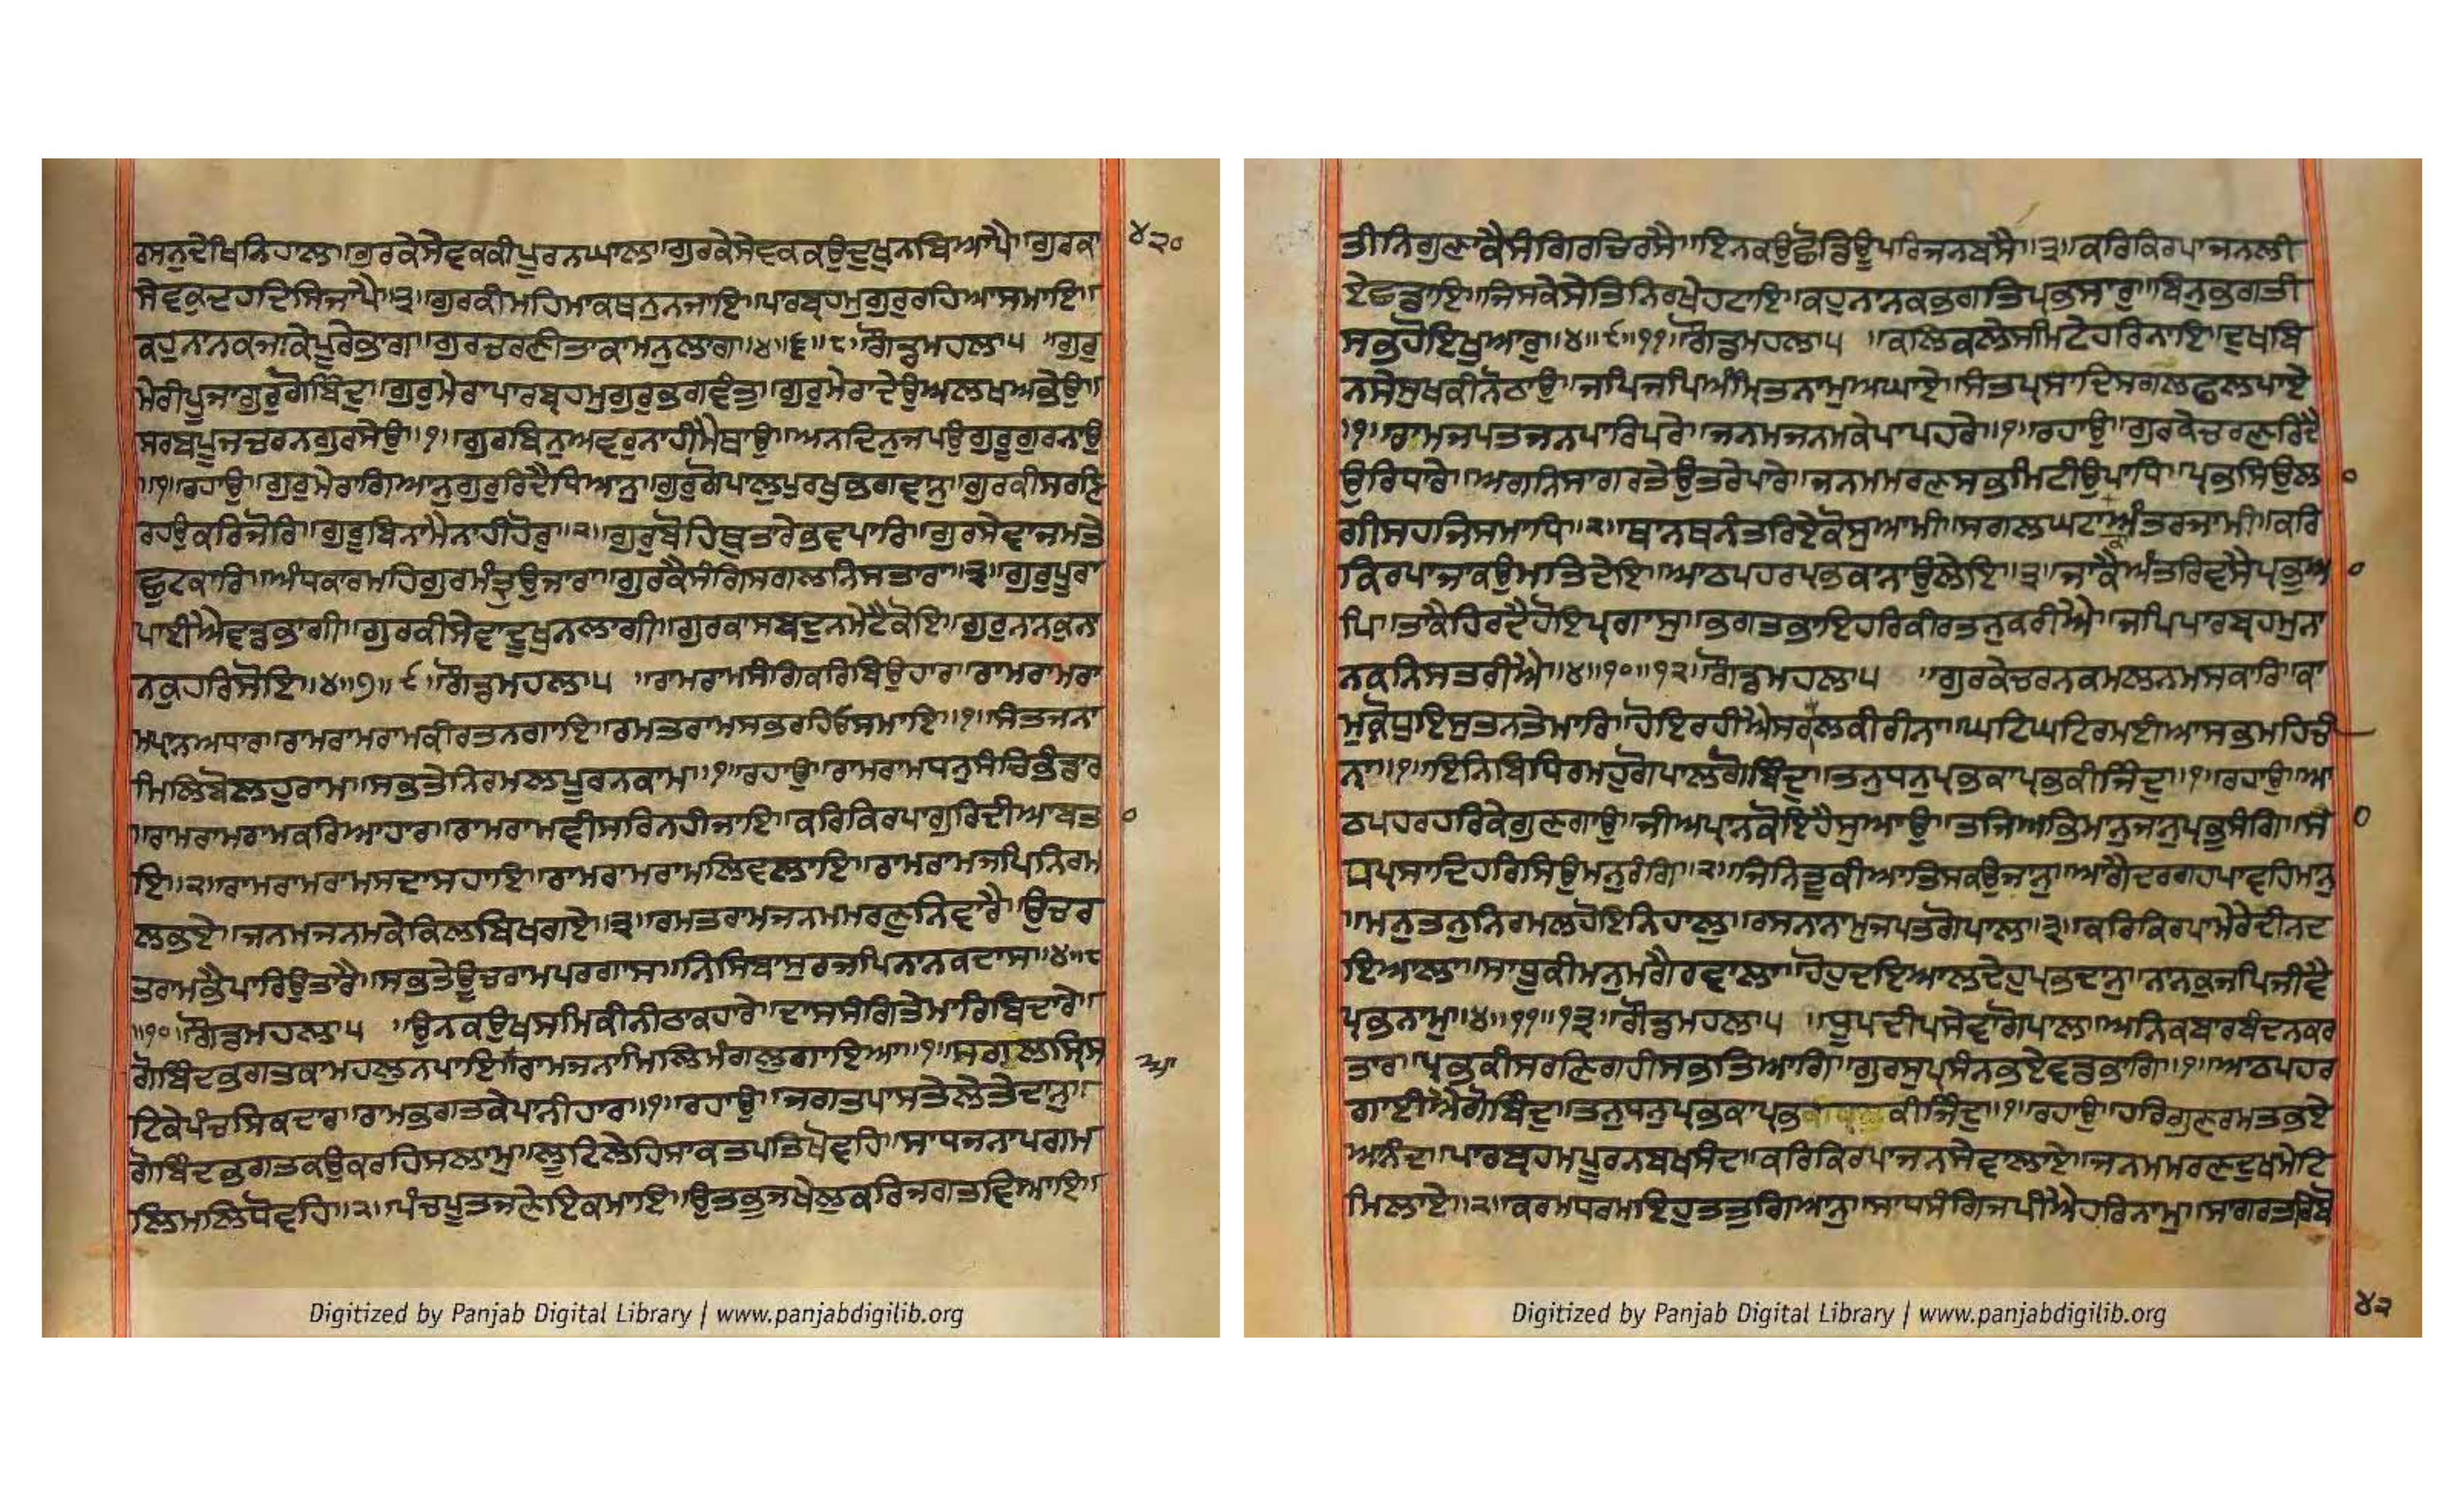 ਰਸਨੁਦੇਖਿਨਿਹਾਲਾ॥ਗੁਰਕੇਸੇਵਕਕੀਪੂਰਨਘਾਲਾ॥ਗੁਰਕੇਸੇਵਕਕਉਦੁਖੁਨਬਿਆਪੈ॥ਗੁਰਕਾ
ਸੇਵਕੁਦਹਦਿਸਿਜਾਪੈ॥੩॥ਗੁਰਕੀਮਹਿਮਾਕਥਨੁਨਜਾਇ॥ਪਾਰਬ੍ਰਹਮੁਗੁਰੁਰਹਿਆਸਮਾਇ॥
ਕਹੁਨਾਨਕਜਾਕੇਪੂਰੇਭਾਗ॥ਗੁਰਚਰਣੀਤਾਕਾਮਨੁਲਾਗ॥੪॥੬॥੮॥ਗੌਡਮਹਲਾ੫ ॥ਗੁਰੁ
ਮੇਰੀਪੂਜਾਗੁਰੁਗੋਬਿੰਦੁ॥ਗੁਰੁਮੇਰਾਪਾਰਬ੍ਰਹਮੁਗੁਰੁਭਗਵੰਤੁ॥ਗੁਰੁਮੇਰਾਦੇਉਅਲਖਅਭੇਉ॥
ਸਰਬਪੂਜਚਰਨਗੁਰਸੇਉ॥੧॥ਗੁਰਬਿਨੁਅਵਰੁਨਾਹੀਮੈਥਾਉ॥ਅਨਦਿਨੁਜਪਉਗੁਰੂਗੁਰਨਾਉ
॥੧॥ਰਹਾਉ॥ਗੁਰੁਮੇਰਾਗਿਆਨੁਗੁਰੁਰਿਦੈਧਿਆਨੁ॥ਗੁਰੁਗੋਪਾਲੁਪੁਰਖੁਭਗਵਾਨੁ॥ਗੁਰਕੀਸਰਣਿ
ਰਹਉਕਰਿਜੋਰਿ॥ਗੁਰੂਬਿਨਾਮੈਨਾਹੀਹੋਰੁ॥੨॥ਗੁਰੁਬੋਹਿਥੁਤਾਰੇਭਵਪਾਰਿ॥ਗੁਰਸੇਵਾਜਮਤੇ
ਛੁਟਕਾਰਿ॥ਅੰਧਕਾਰਮਹਿਗੁਰਮੰਤ੍ਰੁਉਜਾਰਾ॥ਗੁਰਕੈਸੰਗਿਸਗਲਨਿਸਤਾਰਾ॥੩॥ਗੁਰੁਪੂਰਾ
ਪਾਈਐਵਡਭਾਗੀ॥ਗੁਰਕੀਸੇਵਾਦੂਖੁਨਲਾਗੀ॥ਗੁਰਕਾਸਬਦੁਨਮੇਟੈਕੋਇ॥ਗੁਰੁਨਾਨਕੁਨਾ
ਨਕੁਹਰਿਸੋਇ॥੪॥੭॥੯॥ਗੌਡਮਹਲਾ੫ ॥ਰਾਮਰਾਮਸੰਗਿਕਰਿਬਿਉਹਾਰ॥ਰਾਮਰਾਮਰਾ
ਮਪ੍ਰਾਨਅਧਾਰ॥ਰਾਮਰਾਮਰਾਮਕੀਰਤਨਗਾਇ॥ਰਮਤਰਾਮਸਭਰਹਿਓਸਮਾਇ॥੧॥ਸੰਤਜਨਾ
ਮਿਲਿਬੋਲਹੁਰਾਮ॥ਸਭਤੇਨਿਰਮਲਪੂਰਨਕਾਮ॥੧॥ਰਹਾਉ॥ਰਾਮਰਾਮਧਨੁਸੰਚਿਭੰਡਾਰ
॥ਰਾਮਰਾਮਰਾਮਕਰਿਆਹਾਰ॥ਰਾਮਰਾਮਵੀਸਰਿਨਹੀਜਾਇ॥ਕਰਿਕਿਰਪਾਗੁਰਿਦੀਆਬਤਾ੦
ਇ॥੨॥ਰਾਮਰਾਮਰਾਮਸਦਾਸਹਾਇ॥ਰਾਮਰਾਮਰਾਮਲਿਵਲਾਇ॥ਰਾਮਰਾਮਜਪਿਨਿਰਮ
ਲਭਏ॥ਜਨਮਜਨਮਕੇਕਿਲਬਿਖਗਏ॥੩॥ਰਮਤਰਾਮਜਨਮਮਰਣੁਨਿਵਾਰੈ॥ਉਚਰ
ਤਰਾਮਭੈਪਾਰਿਉਤਾਰੈ॥ਸਭਤੇਊਚਰਾਮਪਰਗਾਸ॥ਨਿਸਿਬਾਸੁਰਜਪਿਨਾਨਕਦਾਸ॥੪॥੮
॥੧੦॥ਗੌਡਮਹਲਾ੫ ॥ਉਨਕਉਖਸਮਿਕੀਨੀਠਾਕਹਾਰੇ॥ਦਾਸਸੰਗਿਤੇਮਾਰਿਬਿਦਾਰੇ॥
ਗੋਬਿੰਦਭਗਤਕਾਮਹਲੁਨਪਾਇਆ॥ਰਾਮਜਨਾਮਿਲਿਮੰਗਲੁਗਾਇਆ॥੧॥ਸਗਲਸ੍ਰਿਸ
ਟਿਕੇਪੰਚਸਿਕਦਾਰ॥ਰਾਮਭਗਤਕੇਪਾਨੀਹਾਰ॥੧॥ਰਹਾਉ॥ਜਗਤਪਾਸਤੇਲੇਤੇਦਾਨੁ॥
ਗੋਬਿੰਦਭਗਤਕਉਕਰਹਿਸਲਾਮੁ॥ਲੂਟਿਲੇਹਿਸਾਕਤਪਤਿਖੋਵਹਿ॥ਸਾਧਜਨਾਪਗਮ
ਲਿਮਲਿਧੋਵਹਿ॥੨॥ਪੰਚਪੂਤਜਣੇਇਕਮਾਇ॥ਉਤਭੁਜਖੇਲੁਕਰਿਜਗਤਵਿਆਇ॥
੪੨੦
ਤੀਨਿਗੁਣਾਕੈਸੰਗਿਰਚਿਰਸੇ॥ਇਨਕਉਛੋਡਿਊਪਰਿਜਨਬਸੇ॥੩॥ਕਰਿਕਿਰਪਾਜਨਲੀ
ਏਛਡਾਇ॥ਜਿਸਕੇਸੇਤਿਨਿਰਖੇਹਟਾਇ॥ਕਹੁਨਾਨਕਭਗਤਿਪ੍ਰਭਸਾਰੁ॥ਬਿਨੁਭਗਤੀ
ਸਭਹੋਇਖੁਆਰੁ॥੪॥੯॥੧੧॥ਗੌਡਮਹਲਾ੫ ॥ਕਲਿਕਲੇਸਮਿਟੇਹਰਿਨਾਇ॥ਦੁਖਬਿ
ਨਸੇਸੁਖਕੀਨੋਠਾਉ॥ਜਪਿਜਪਿਅੰਮ੍ਰਿਤਨਾਮੁਅਘਾਏ॥ਸੰਤਪ੍ਰਸਾਦਿਸਗਲਫਲਪਾਏ
॥੧॥ਰਾਮਜਪਤਜਨਪਾਰਿਪਰੇ॥ਜਨਮਜਨਮਕੇਪਾਪਹਰੇ॥੧॥ਰਹਾਉ॥ਗੁਰਕੇਚਰਣਰਿਦੈ
ਉਰਿਧਾਰੇ॥ਅਗਨਿਸਾਗਰਤੇਉਤਰੇਪਾਰੇ॥ਜਨਮਮਰਣਸਭਮਿਟੀਉਪਾਧਿ॥ਪ੍ਰਭਸਿਉਲਾ੦
ਗੀਸਹਜਿਸਮਾਧਿ॥੨॥ਥਾਨਥਨੰਤਰਿਏਕੋਸੁਆਮੀ॥ਸਗਲਘਟਾਅੰਤਰਜਾਮੀ॥ਕਰਿ
ਕਿਰਪਾਜਾਕਉਮਤਿਦੇਇ॥ਆਠਪਹਰਪ੍ਰਭਕਾਨਾਉਲੇਇ॥੩॥ਜਾਕੈਅੰਤਰਿਵਸੈਪ੍ਰਭੁਆ੦
ਪਿ॥ਤਾਕੈਹਿਰਦੈਹੋਇਪ੍ਰਗਾਸੁ॥ਭਗਤਭਾਇਹਰਿਕੀਰਤਨੁਕਰੀਐ॥ਜਪਿਪਾਰਬ੍ਰਹਮੁਨਾ
ਨਕਨਿਸਤਰੀਐ॥੪॥੧੦॥੧੨॥ਗੌਡਮਹਲਾ੫ ॥ਗੁਰਕੇਚਰਨਕਮਲਨਮਸਕਾਰਿ॥ਕਾ
ਮੁਕ੍ਰੋਧੁਇਸੁਤਨਤੇਮਾਰਿ॥ਹੋਇਰਹੀਐਸਗਲਕੀਰੀਨਾ॥ਘਟਿਘਟਿਰਮਈਆਸਭਮਹਿਚੀ
ਨਾ॥੧॥ਇਨਿਬਿਧਿਰਮਹੁਗੋਪਾਲਗੋਬਿੰਦੁ॥ਤਨੁਧਨੁਪ੍ਰਭਕਾਪ੍ਰਭਕੀਜਿੰਦੁ॥੧॥ਰਹਾਉ॥ਆ
ਠਪਹਰਹਰਿਕੇਗੁਣਗਾਉ॥ਜੀਅਪ੍ਰਾਨਕੋਇਹੈਸੁਆਉ॥ਤਜਿਅਭਿਮਾਨੁਜਾਨੁਪ੍ਰਭੁਸੰਗਿ॥ਸਾ੦
ਧਪ੍ਰਸਾਦਿਹਰਿਸਿਉਮਨੁਰੰਗਿ॥੨॥ਜਿਨਿਤੂਕੀਆਤਿਸਕਉਜਾਨੁ॥ਆਗੈਦਰਗਹਪਾਵਹਿਮਾਨੁ
॥ਮਨੁਤਨੁਨਿਰਮਲਹੋਇਨਿਹਾਲੁ॥ਰਸਨਾਨਾਮੁਜਪਤਗੋਪਾਲ॥੩॥ਕਰਿਕਿਰਪਾਮੇਰੇਦੀਨਦ
ਇਆਲਾ॥ਸਾਧੂਕੀਮਨੁਮੰਗੈਰਵਾਲਾ॥ਹੋਹੁਦਇਆਲਦੇਹੁਪ੍ਰਭਦਾਨੁ॥ਨਾਨਕੁਜਪਿਜੀਵੈ
ਪ੍ਰਭਨਾਮੁ॥੪॥੧੧॥੧੩॥ਗੌਡਮਹਲਾ੫ ॥ਧੂਪਦੀਪਸੇਵਾਗੋਪਾਲ॥ਅਨਿਕਬਾਰਬੰਦਨਕਰ
ਤਾਰ॥ਪ੍ਰਭਕੀਸਰਣਿਗਹੀਸਭਤਿਆਗਿ॥ਗੁਰਸੁਪ੍ਰਸੰਨਭਏਵਡਭਾਗਿ॥੧॥ਆਠਪਹਰ
ਗਾਈਐਗੋਬਿੰਦੁ॥ਤਨੁਧਨੁਪ੍ਰਭਕਾਪ੍ਰਭਕੀਜਿੰਦੁ॥੧॥ਰਹਾਉ॥ਹਰਿਗੁਣਰਮਤਭਏ
ਅਨੰਦਾ॥ਪਾਰਬ੍ਰਹਮਪੂਰਨਬਖਸੰਦਾ॥ਕਰਿਕਿਰਪਾਜਨਸੇਵਾਲਾਏ॥ਜਨਮਮਰਣਦੁਖਮੇਟਿ
ਮਿਲਾਏ॥੨॥ਕਰਮਧਰਮਇਹੁਤਤੁਗਿਆਨੁ॥ਸਾਧਸੰਗਿਜਪੀਐਹਰਿਨਾਮੁ॥ਸਾਗਰਤਰਿਬੋ
੪੨
Digitized by Panjab Digital Library | www.panjabdigilib.org
Digitized by Panjab Digital Library | www.panjabdigilib.org